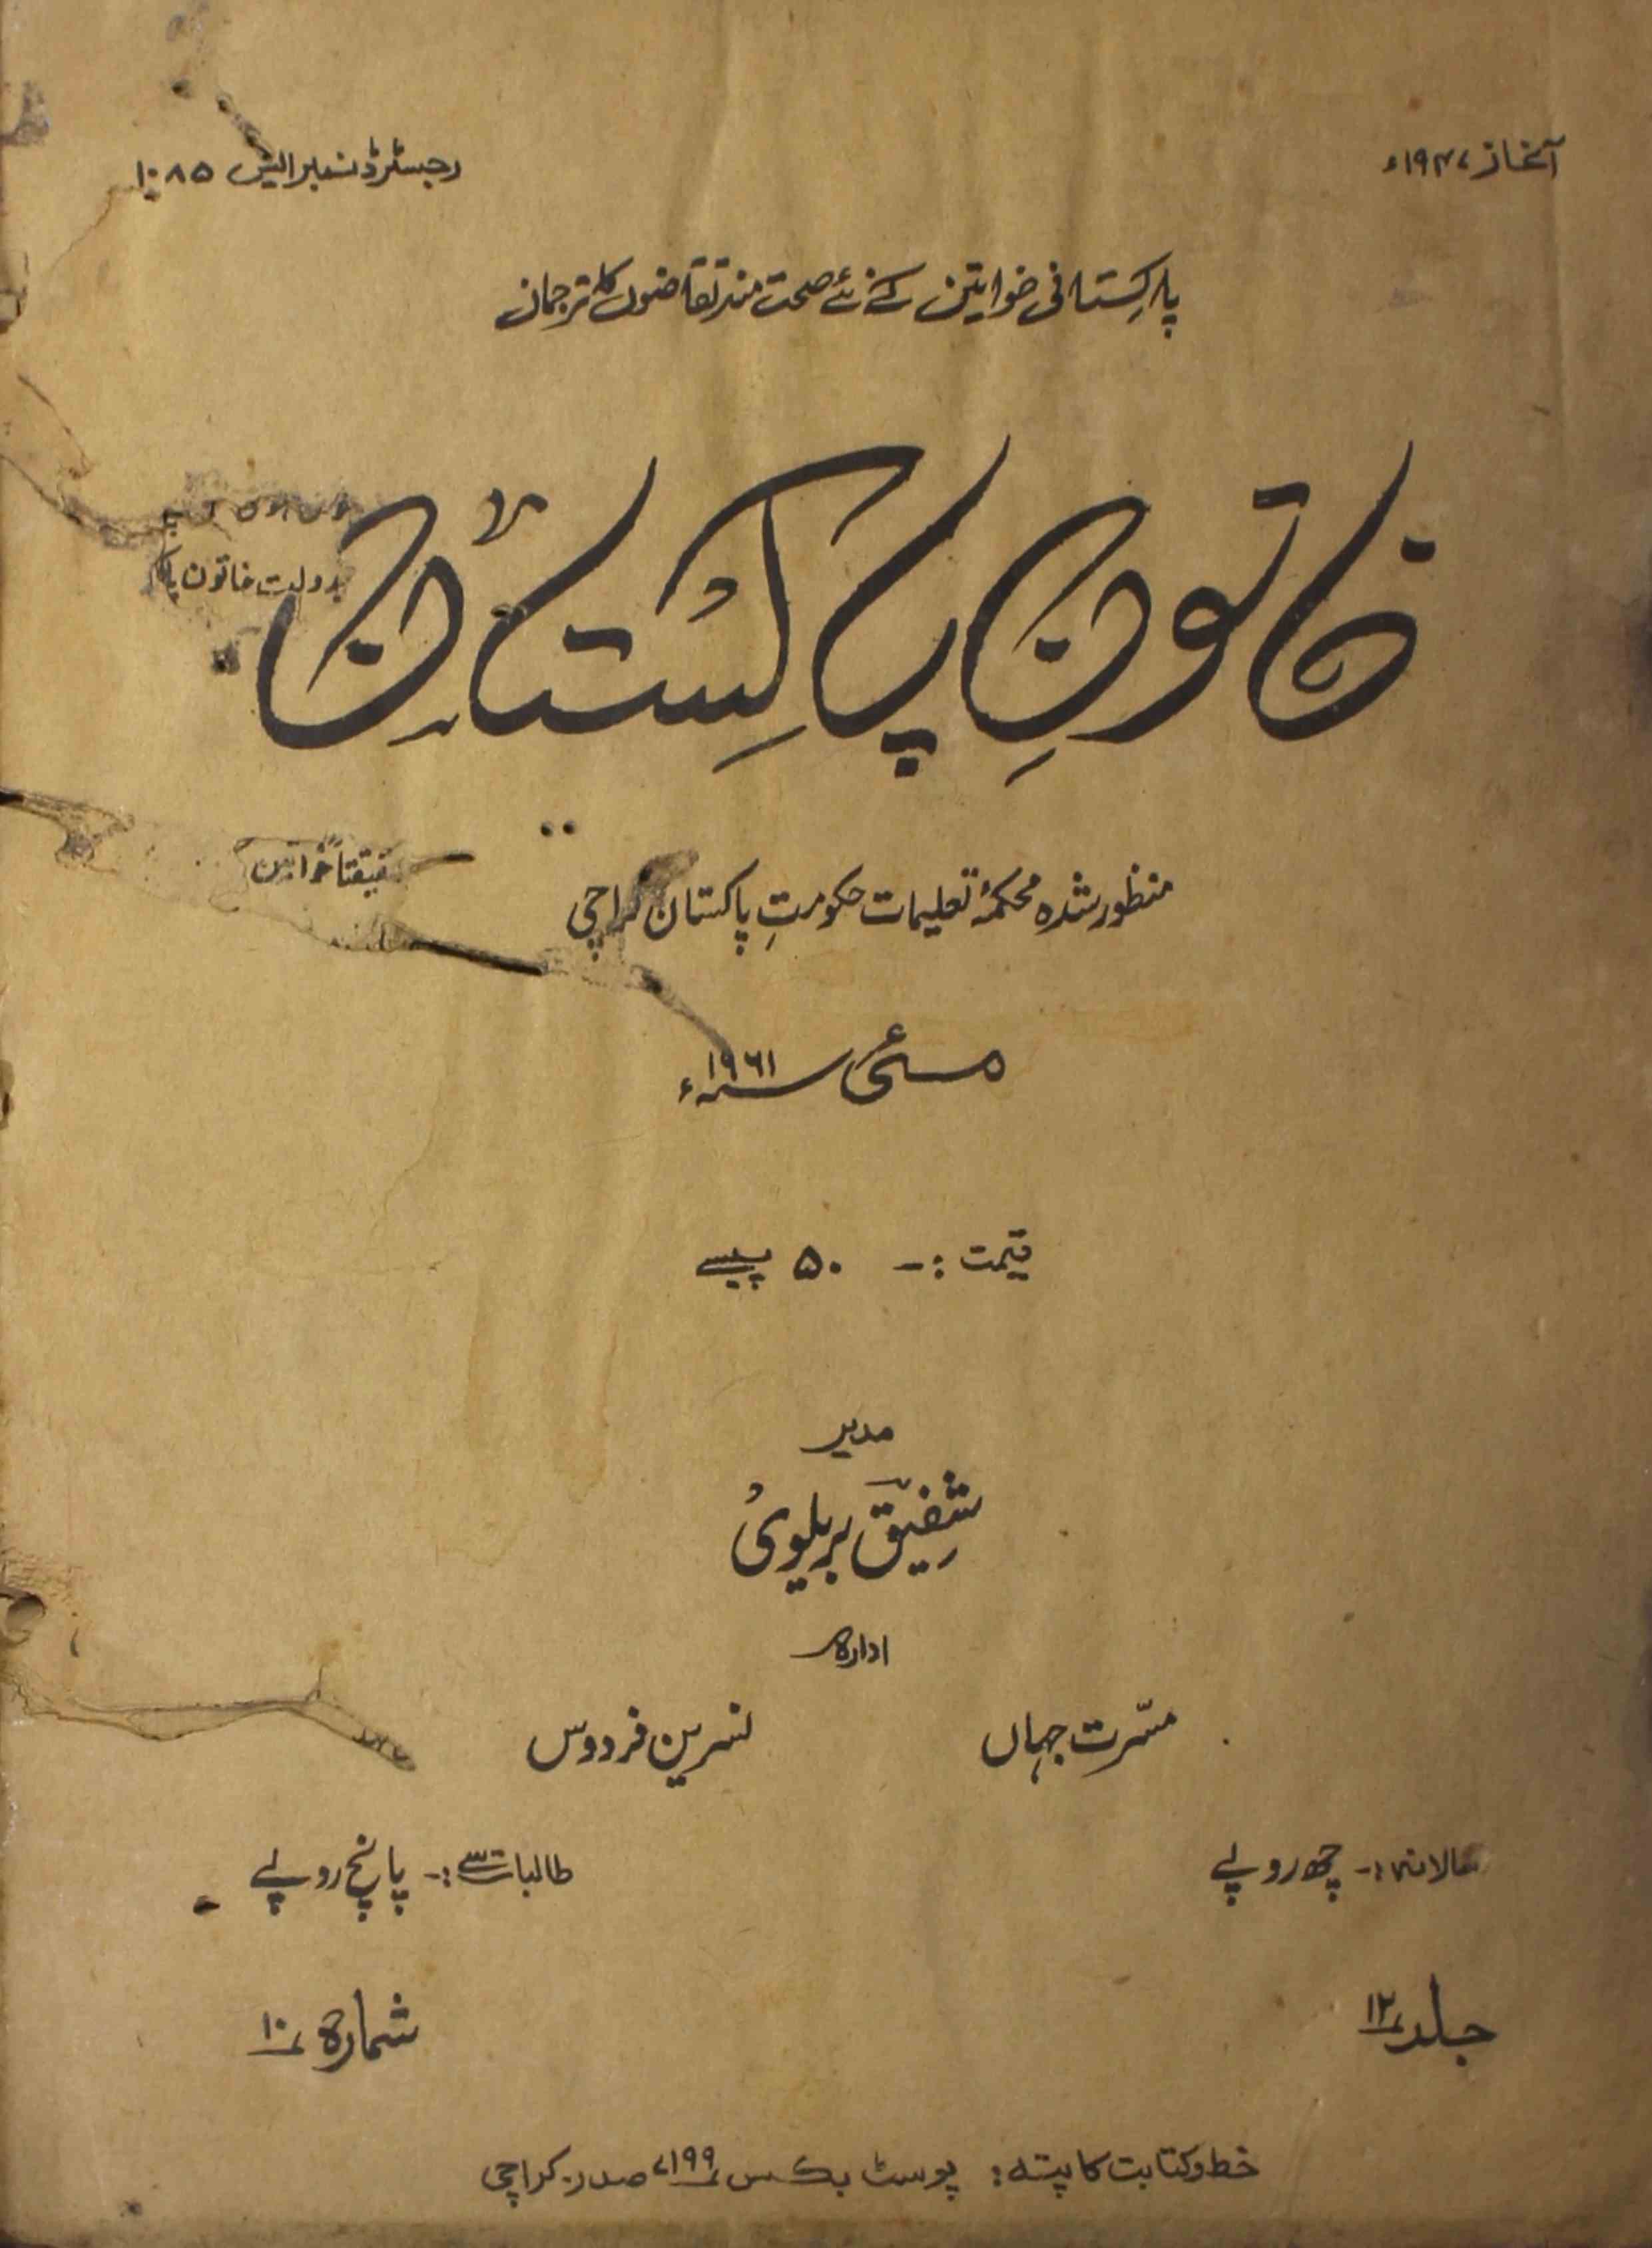 آغاز ۱۹۴۷ء
رجسٹرڈ نمبر ایس ۱۰۸۵
پاکستانی خواتین کے نئے صحت مند تقاضوں کا ترجمان
خاتونِ پاکستان
بدولت خاتون
منظور شدہ محکمۂ تعلیمات حکومتِ پاکستان کراچی
خواتین
مئی ۱۹۶۱ء
قیمت :- ۵۰ پیسے
مدیر
شفیق بریلوی
ادارہ
مسّرت جہاں
نسرین فردوس
سالانہ :- چھ روپے
طالبات سے :- پانچ روپے
جلد ۱۲
شمارہ ۱۰
خط و کتابت کا پتہ : پوسٹ بکس ۷۱۹۹ صدر کراچی